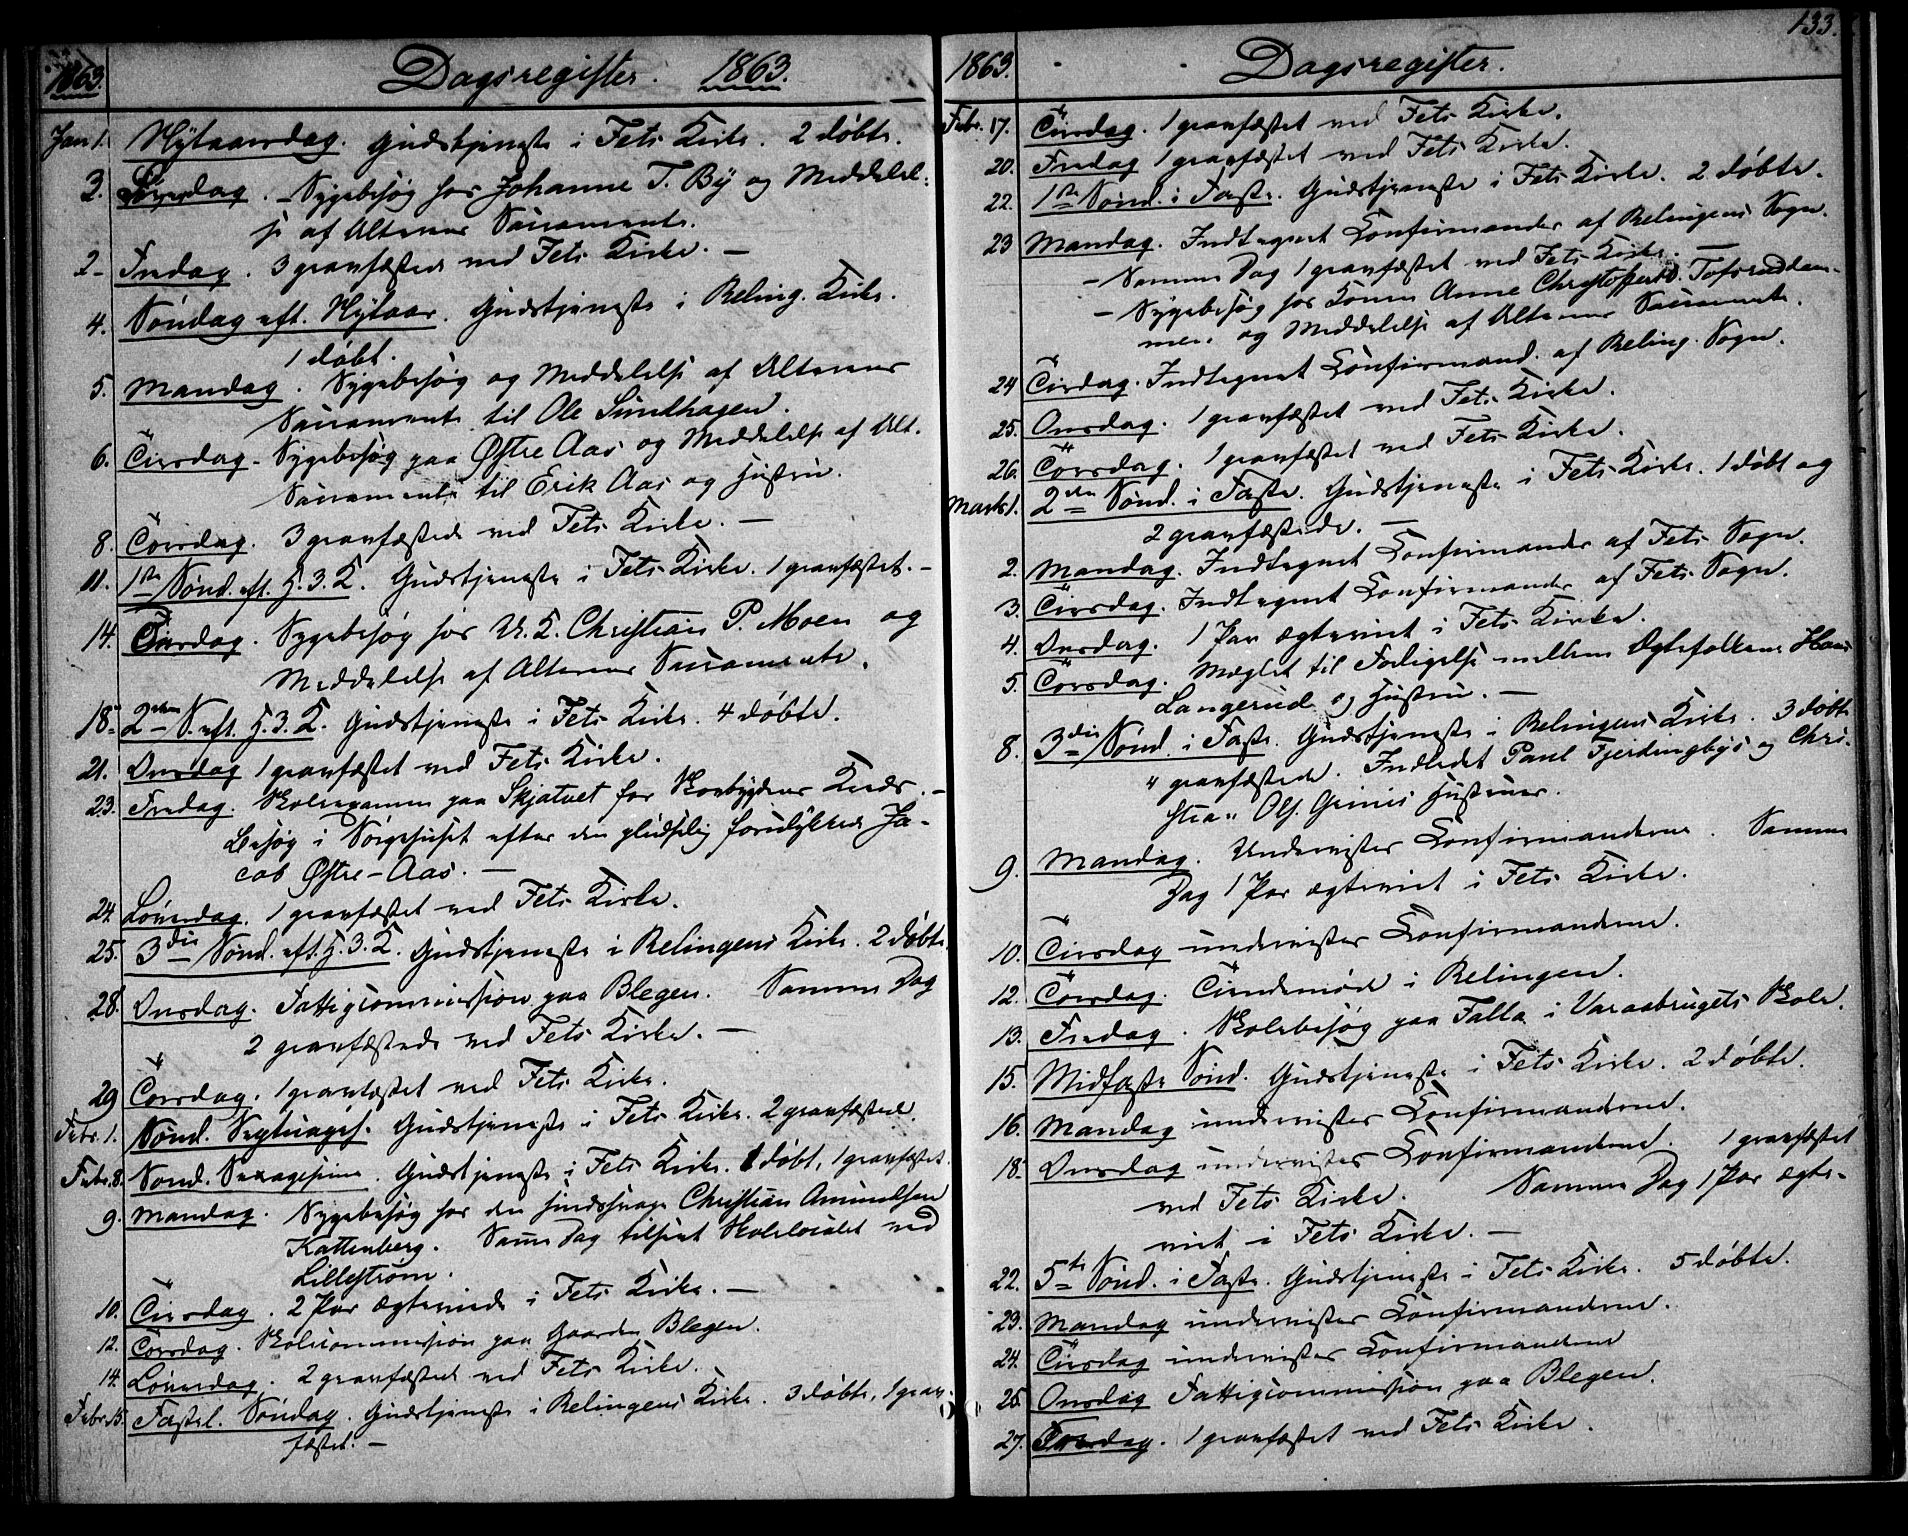 1863. Dagsregister. 1863.
Jan 1. Nytaarsdag. Gudstjeneste i Fets Kirke. 2 døbte.
3. Lørdag. – Sygebesøg hos Johanne T. By og Meddelel-
se af Alterens Sacramente.
2– Fredag. 3 gravfæstede ved Fets Kirke. –
4. Søndag eft. Nytaar. Gudstjeneste i Reling. Kirke.
1 døbt.
5. Mandag. Sygebesøg og Meddelelse af Alterens
Sacramente til Ole Sundhagen.
6. Tirsdag – Sygebesøg paa Østre Aas og Meddelelse af Alt.
Sacramente til Erik Aas og Hustru.
8. Torsdag. 3 gravfæstede ved Fets Kirke. –
11. 1ste Sønd. eft. H. 3. K. Gudstjeneste i Fets Kirke. 1 gravfæstet. –
14. Onsdag. Sygebesøg hos U. K. Christian P. Moen og
Meddelelse af Alterens Sacramente.
18– 2den S. eft. H. 3. K. Gudstjeneste i Fets Kirke. 4 døbte.
21. Onsdag 1 gravfæstet ved Fets Kirke.
23. Fredag. Skoleexamen paa Skjatvet for Skovbygdens Kreds. –
Besøg i Sørgehuset efter den pludselig forulykkede Ja-
cob Østre-Aas. –
24. Løverdag. 1 gravfæstet ved Fets Kirke.
25. 3die Sønd. eft. H. 3. K. Gudstjeneste i Relingens Kirke. 2 døbte.
28. Onsdag. Fattigcommission paa Blegen. Samme Dag
2 gravfæstede ved Fets Kirke. –
29 Torsdag. 1 gravfæstet ved Fets Kirke.
Febr. 1. Sønd. Septuages. Gudstjeneste i Fets Kirke. 2 gravfæstede.
Febr. 8. Sønd. Sexagesima. Gudstjeneste i Fets Kirke. 1 døbt, 1 gravfæstet.
9. Mandag. Sygebesøg hos den sindssvage Christian Amundsen
Kattenberg. Samme Dag tilseet Skolelocalet ved
Lillestrøm.
10. Tirsdag. 2 Par ægteviede i Fets Kirke. –
12. Torsdag. Skolecommission paa Gaarden Blegen.
14. Løverdag. 2 gravfæstede ved Fets Kirke.
Febr. 15. Fastel. Søndag. Gudstjeneste i Relingens Kirke. 3 døbte, 1 grav-
fæstet. –
133.
1863. Dagsregister.
Febr. 17. Tirsdag. 1 gravfæstet ved Fets Kirke.
20. Fredag 1 gravfæstet ved Fets Kirke.
22. 1ste Sønd. i Faste. Gudstjeneste i Fets Kirke. 2 døbte.
23 Mandag. Indtegnet Confirmander af Relingens Sogn.
– Samme Dag 1 gravfæstet ved Fets Kirke. –
– Sygebesøg hos Konen Anne Christoffersd. Tofsruddam-
men og Meddelelse af Alterens Sacramente.
24 Tirsdag. Indtegnet Confirmand. af Reling. Sogn.
25. Onsdag. 1 gravfæstet ved Fets Kirke.
26. Torsdag. 1 gravfæstet ved Fets Kirke.
Marts 1. 2den Sønd. i Faste. Gudstjeneste i Fets Kirke. 1 døbt og
2 gravfæstede. –
2. Mandag. Indtegnet Confirmander af Fets Sogn.
3. Tirsdag. Indtegnet Confirmander af Fets Sogn.
4. Onsdag. 1 Par ægteviet i Fets Kirke.
5. Torsdag. Mæglet til Forligelse mellem Ægtefolkene Hans
Langerud og Hustru. –
8. 3die Sønd. i Faste. Gudstjeneste i Relingens Kirke. 3 døbte
4 gravfæstede. Indledet Paul Fjerdingbys og Chri-
stian Ols. Grinis Hustruer.
9. Mandag. Undervister Confirmanderne. Samme
Dag 1 Par ægteviet i Fets Kirke.
10. Tirsdag undervister Confirmanderne.
12. Torsdag. Tiendemøde i Relingen.
13. Fredag. Skolebesøg paa Falla i Varaabrugets Skole.
15. Midfaste Sønd. Gudstjeneste i Fets Kirke. 2 døbte.
16. Mandag undervister Confirmanderne.
18. Onsdag undervister Confirmanderne. 1 gravfæstet
ved Fets Kirke. Samme Dag 1 Par ægte-
viet i Fets Kirke. –
22. 5te Sønd. i Faste. Gudstjeneste i Fets Kirke. 5 døbte.
23. Mandag undervister Confirmanderne.
24. Tirsdag undervister Confirmanderne
25. Onsdag Fattigcommission paa Blegen.
27. Fredag. 1 gravfæstet ved Fets Kirke.